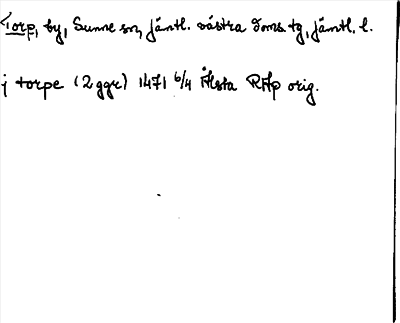 Torp, by, Sunne sn, Jämtl. västra doms. tg, Jämtl. l.
j torpe (2 ggr) 1471 6/4 Ålsta RAp orig.